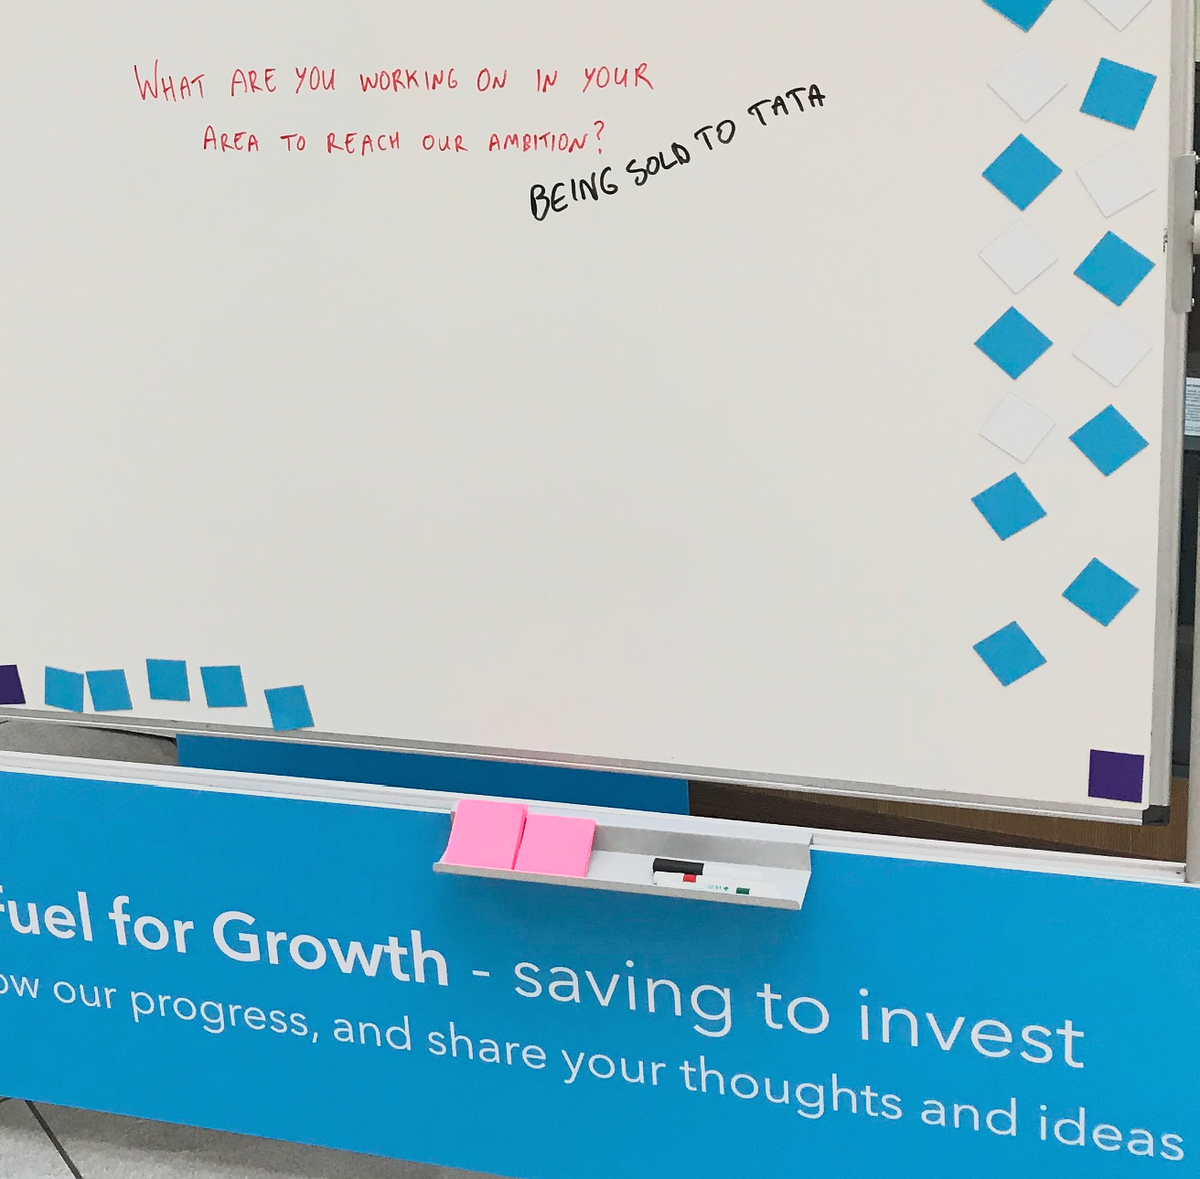 WHAT ARE YOU WORKING ON IN YOUR
AREA TO REACH OUR AMBITION?
BEING SOLD TO TATA
Fuel for Growth - saving to invest
our progress, and share your thoughts and ideas